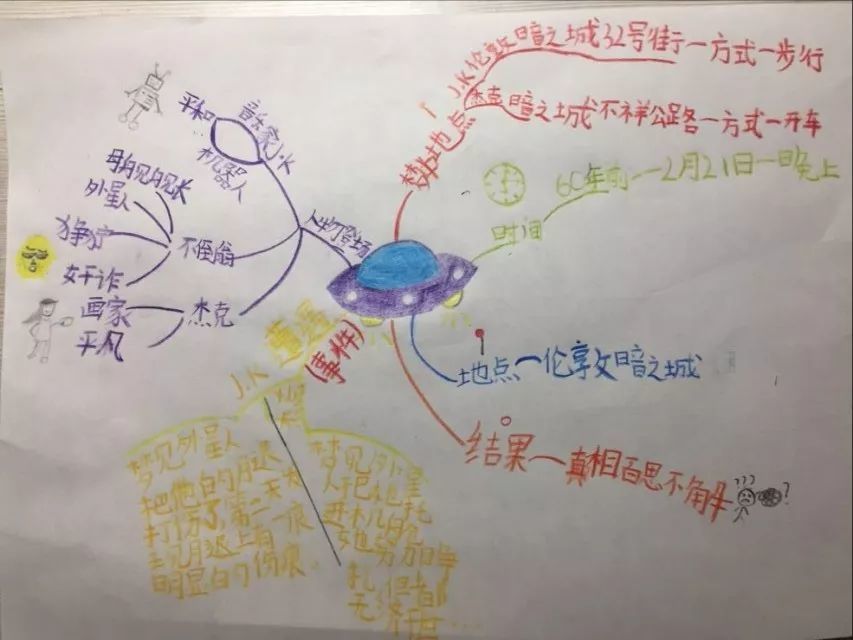 J.K 伦敦暗之城32号街一方式一步行
杰克 暗之城不祥公路一方式一开车
梦地点
60年前一2月21日一晚上
时间
地点一伦敦暗之城
结果一真相百思不解
???
?
人物登场
音乐家J.K
平和
机器人
不倒翁
母舰舰长
外星人
狰狞
奸诈
杰克
画家
平凡
遭遇
(事件)
J.K
梦见外星人
把他的
打伤了,第二天太
上有一
明显的伤痕.
梦见外星
人把他托
进机舱
她努力
扎,但都
无济于